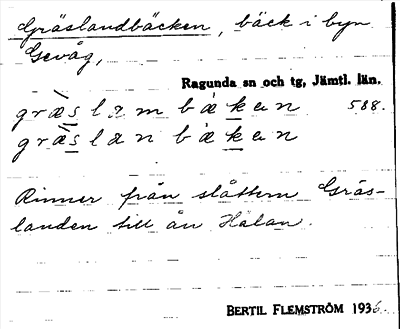 Gräslandbäcken, bäck i byn
Gevåg,
Ragunda sn och tg, Jämtl. län.
græslam bækən 588.
græslan bækən
Rinner från slåttern Gräs-
landen till ån Halan.
BERTIL FLEMSTRÖM 1936.